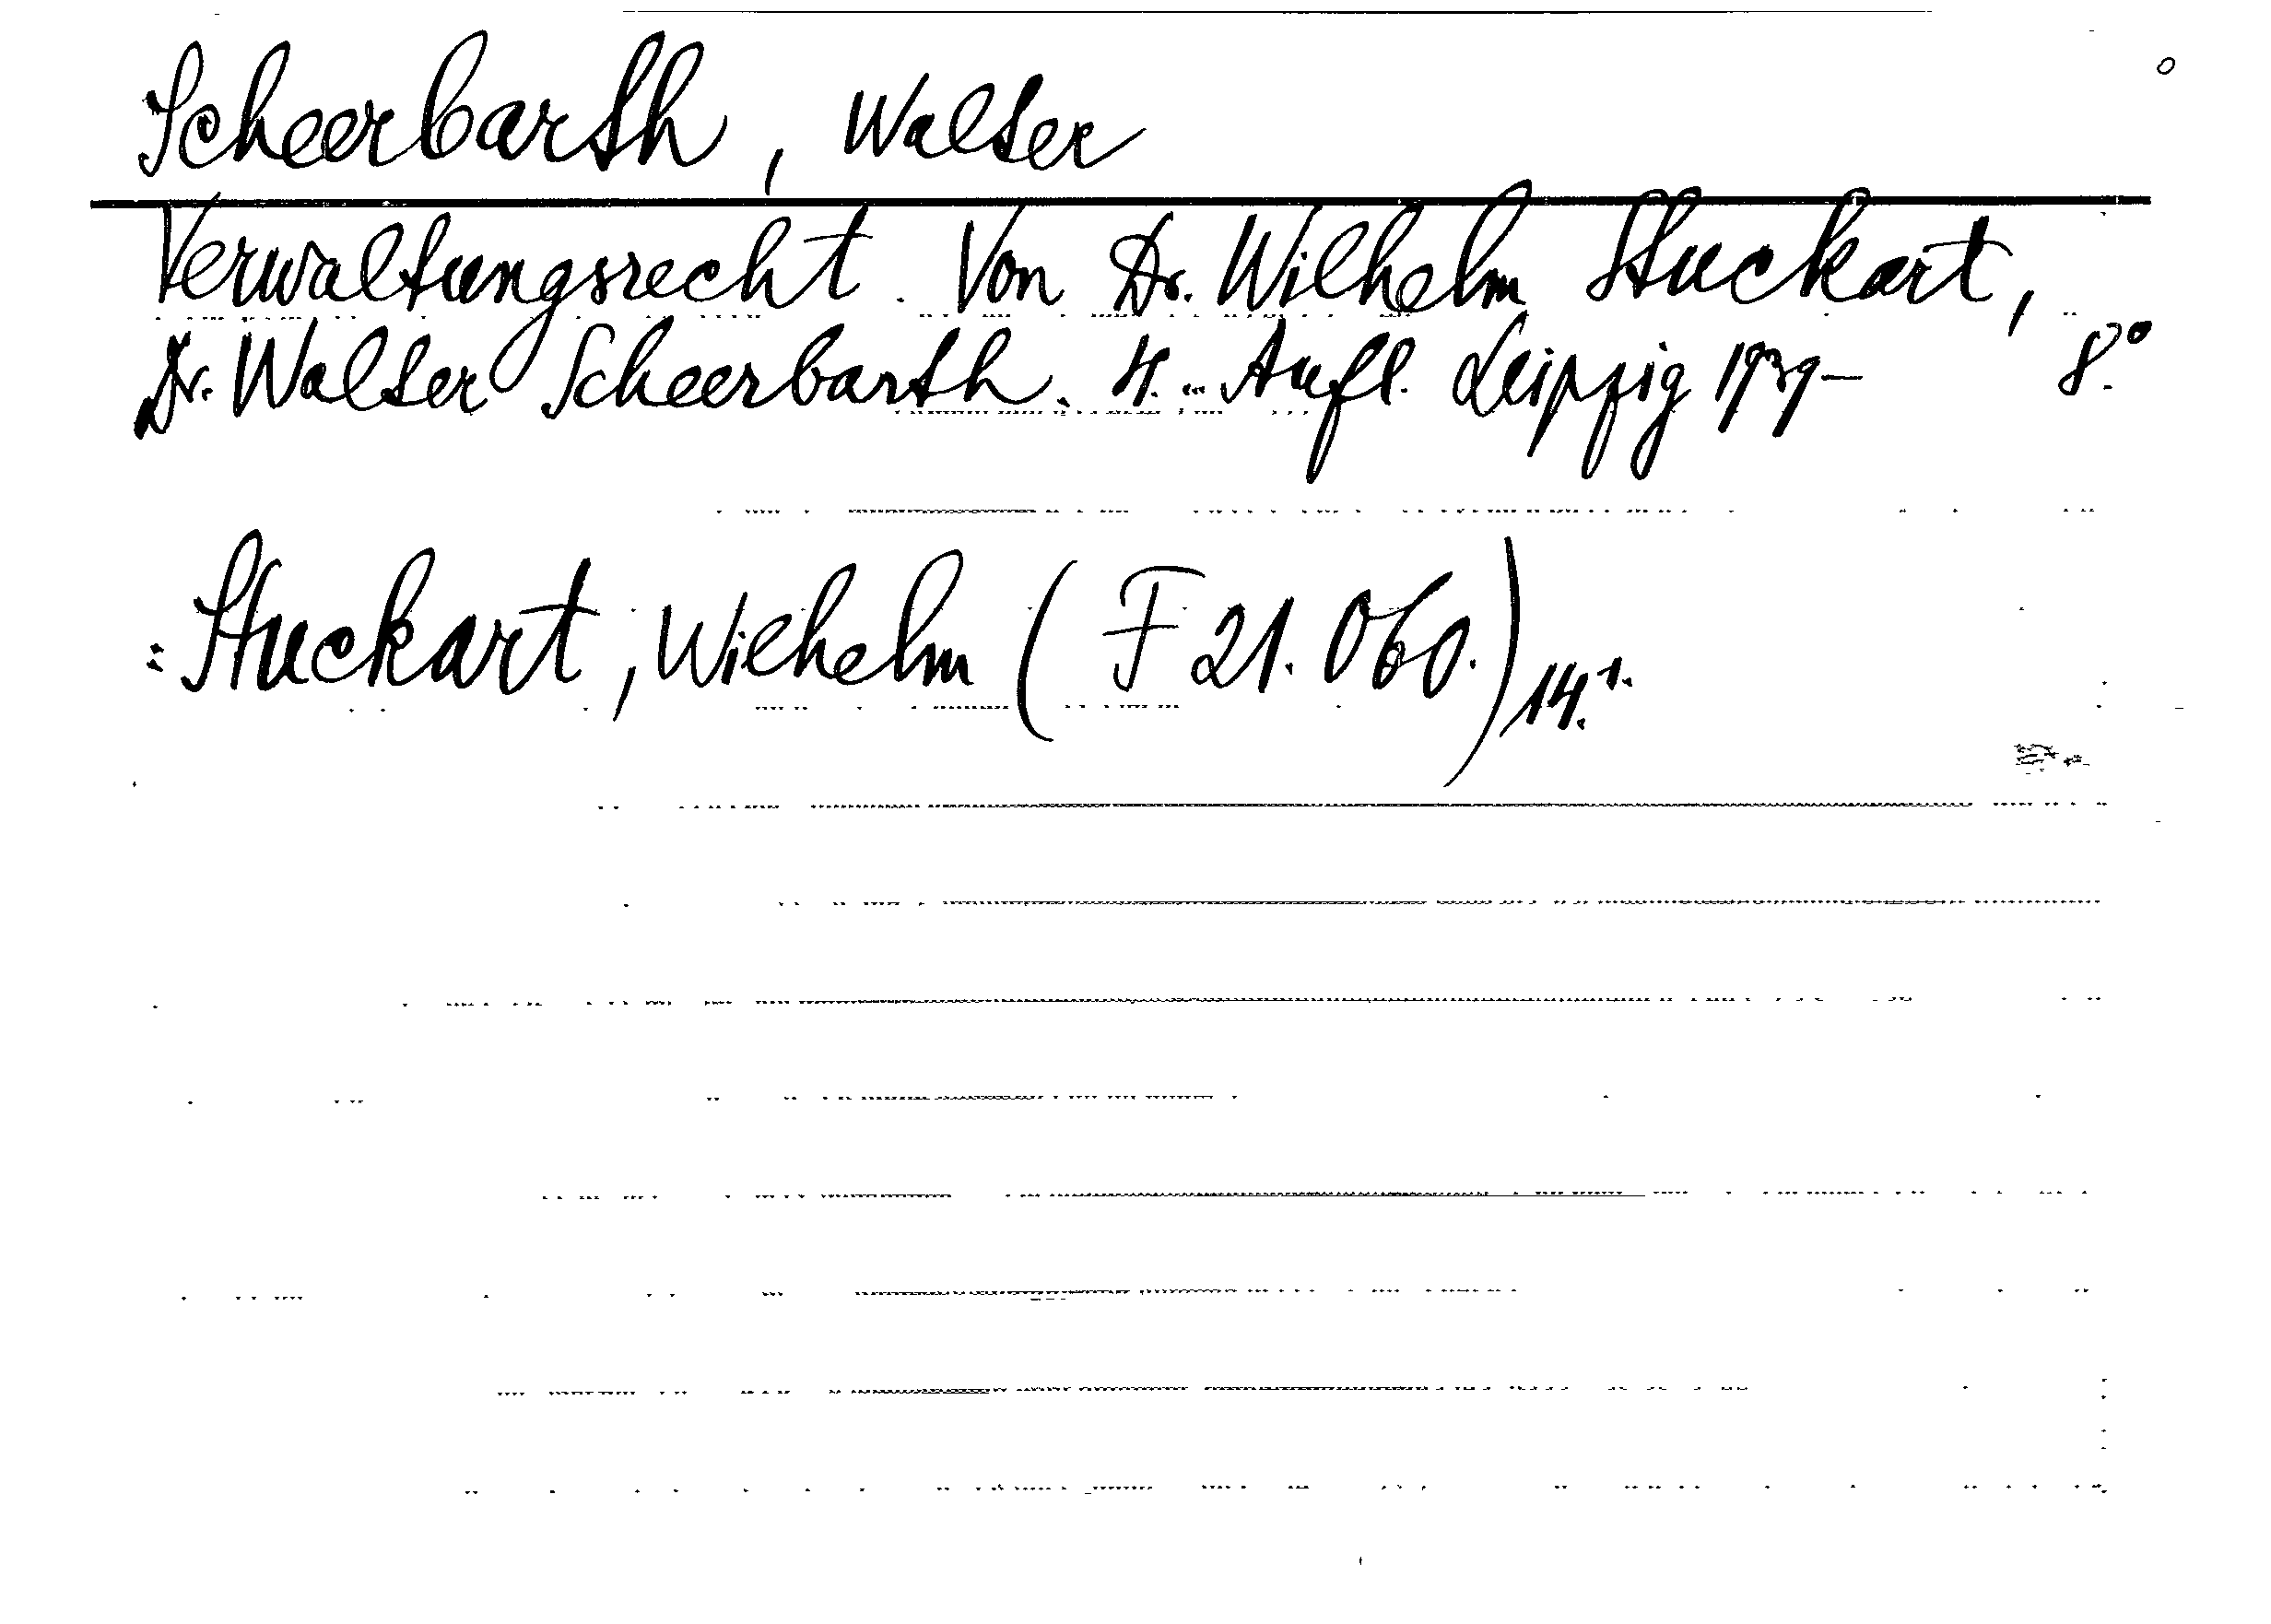 Scheerbarth, Walter
Verwaltungsrecht. Von Dr. Wilhelm Stuckart,
Dr. Walter Scheerbarth. 4... Aufl. Leipzig 1939- 8°.
: Stuckart, Wilhelm (F 21. 060.) 14.1.